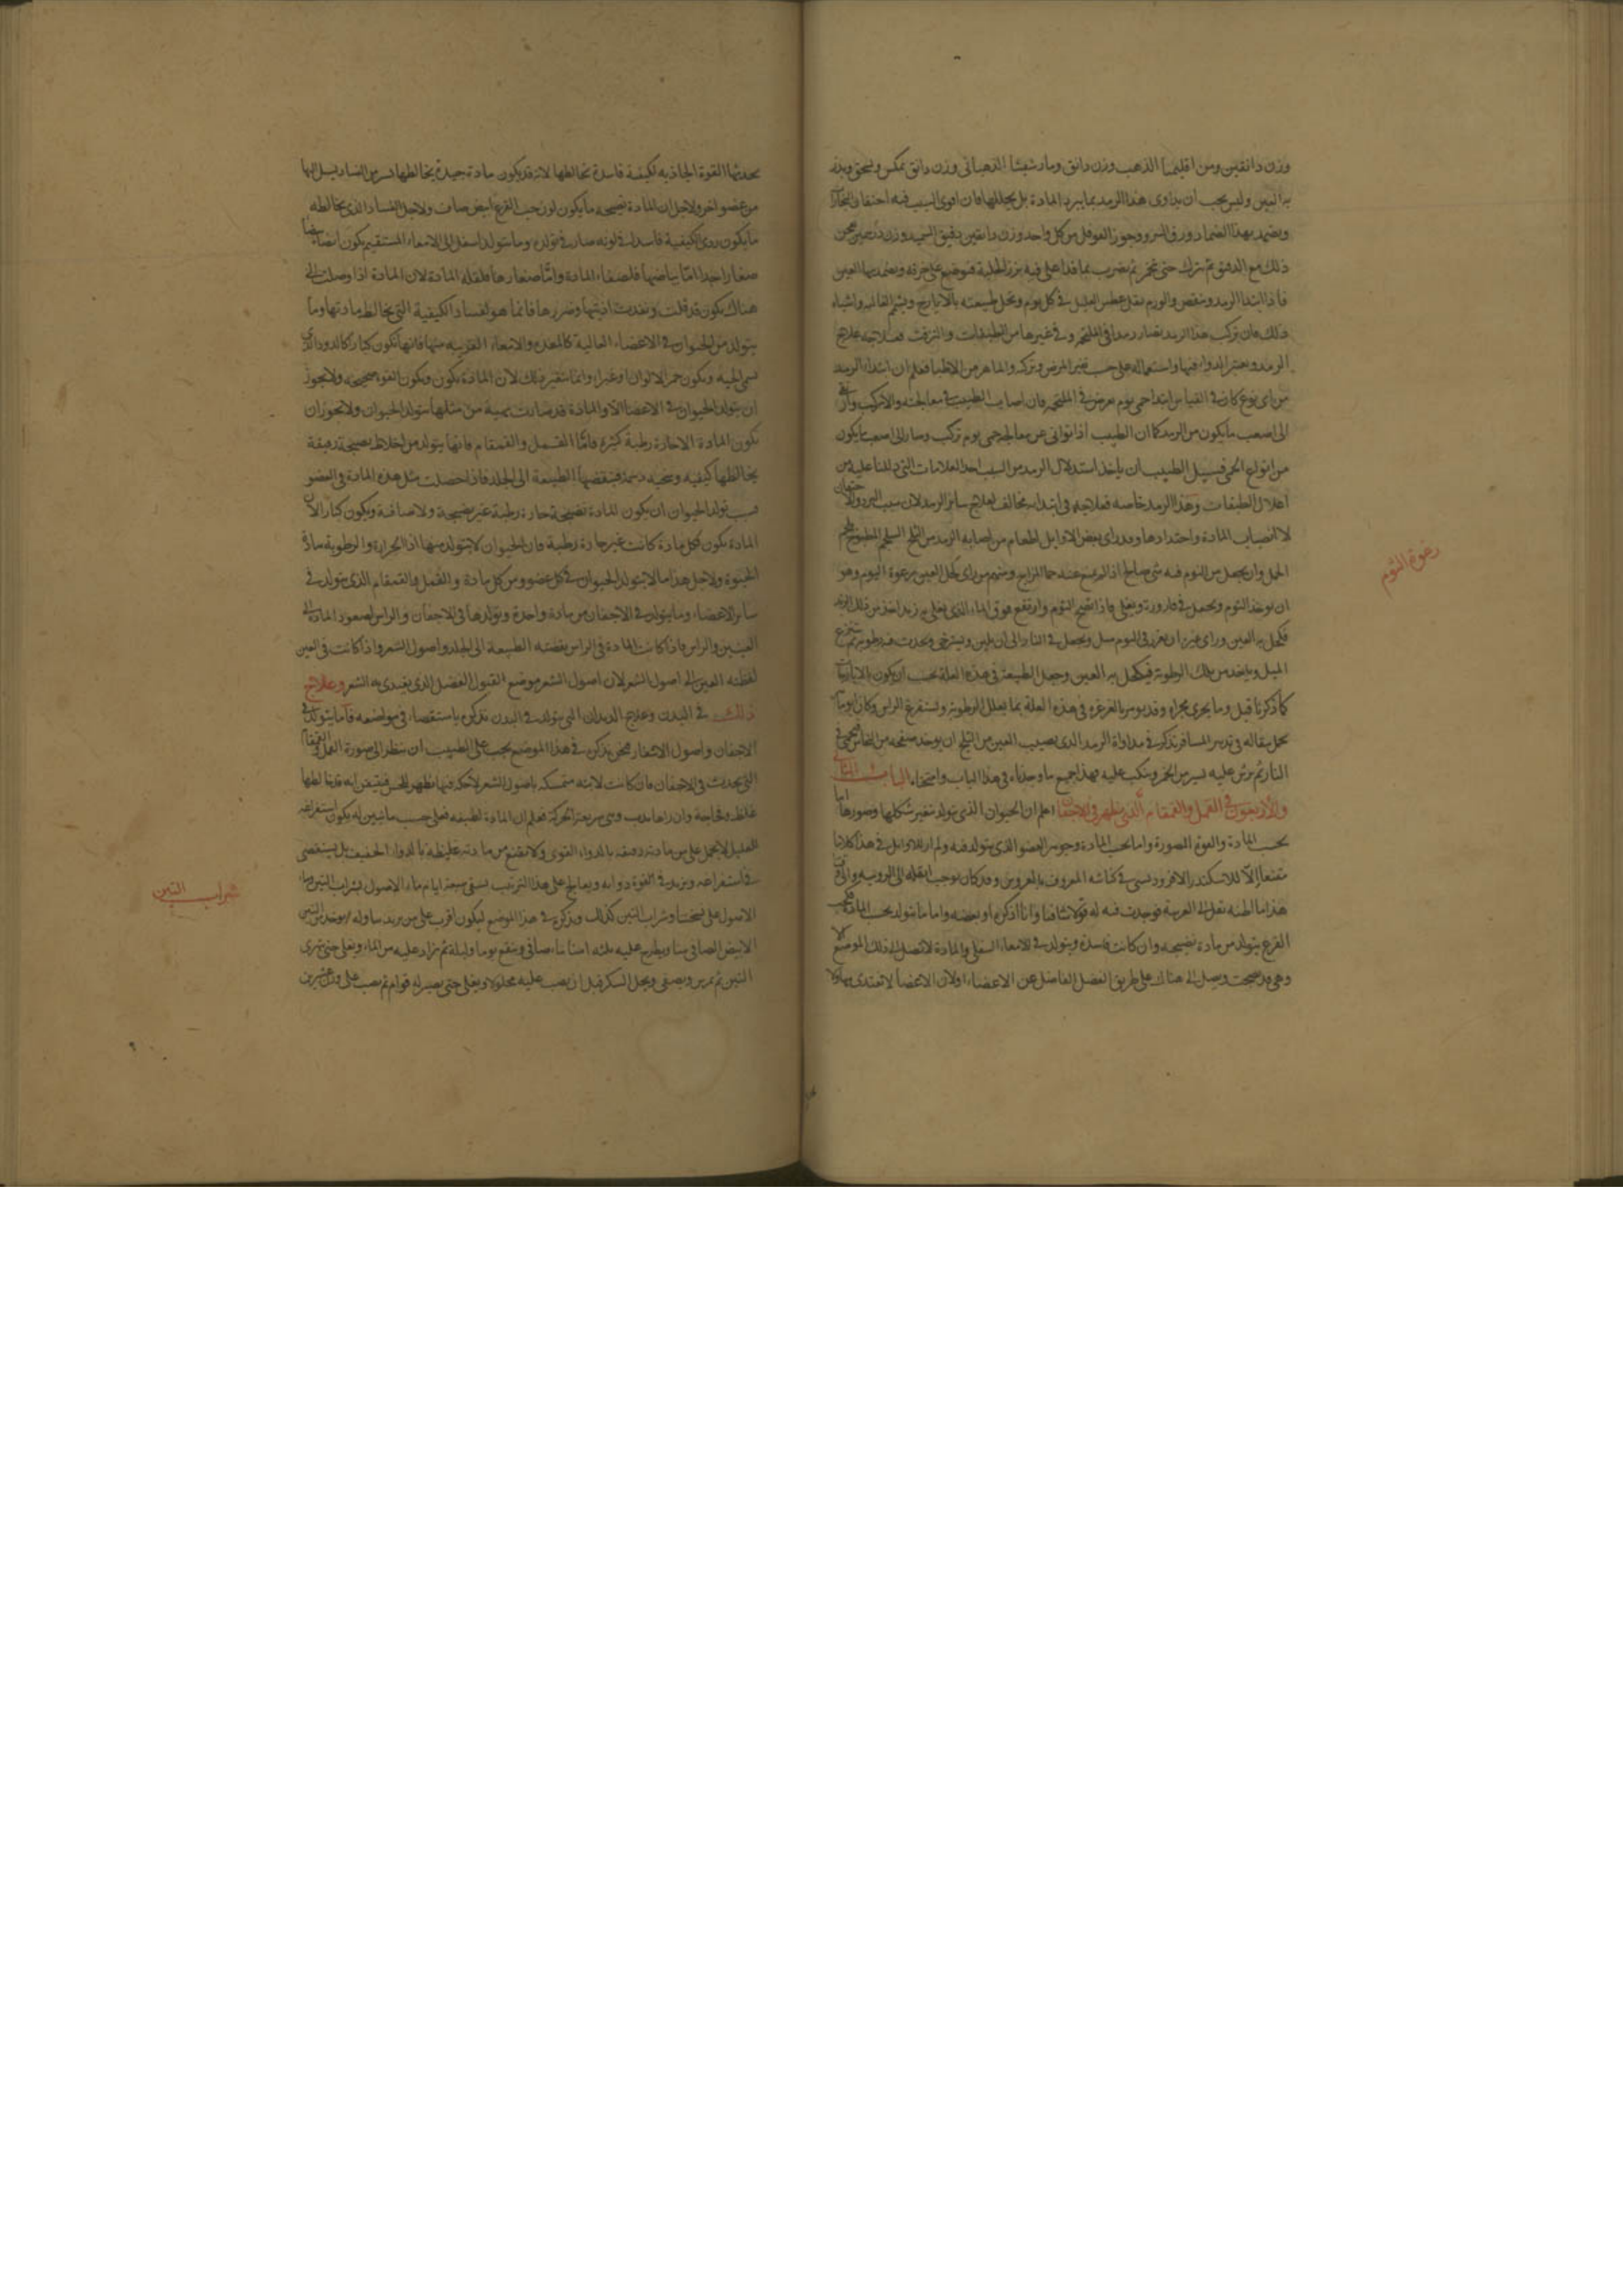 وزن دانقين ومن اقليميا الذهب وزن دانق ومارقشيثا الذهباني وزن دانق يمكن ويسحق ويذر
به العين وليس يجب ان يداوى هذا الرمد بما يبرد المادة بل بما يحللها فان اقوى السبب فيه احتقان البخار
ويضمد بهذا الضماد ورق السرو وجوز من كل واحد وزن دانقين دقيق الشعير وزن
ذلك مع الدقيق ثم يترك حتى يخمر ثم يضرب بماء قد اغلى فيه بزر الحلبة فيوضع على خرقة ويضمد بها العين
فاذا ابتدا الرمد وينقص والورم يقل عطس العليل في كل يوم وتحل طبيعته بالايارج واشباه
ذلك فان تركب هذا الرمد فصار رمدا في الملتحم وفي غيرها من الطبقات فعلاجه علاج
الرمد الدواء فيها واستعماله على حسب تغير المرض وتركبه والماهر من الاطبا فعلم ان ابتداء الرمد
من اي نوع كان في القياس ابتدا حمى يوم يعرض في الملتحم فان اصاب الطبيب في معالجته والا تركب
الى اصعب ما يكون من الرمد كما ان الطبيب اذا توانى عن معالجة حمى يوم تركب وصار الى اصعب ما يكون
من انواع الحمى فسبيل الطبيب ان ياخذ استدلال الرمد من السبب العلامات التي دللنا عليه من
اعلال الطبقات وهذا الرمد خاصة فعلاجه في ابتدائه مخالف لعلاج ساير الرمد لان سببه البرد والاحتقان
لا انصباب المادة واحتدادها وقد راى بعض الاوايل اطعام من اصابه الرمد من الثلج المطبوخ بلحم
الحمل وان يجعل من الثوم فيه شي صالح اذا لم يمنع عنه حما المزاج ومنهم من راى كحل العين برغوة الثوم وهو
ان يوخذ الثوم ويجعل في قارورة ويغلى فاذا نضج الثوم وارتفع فوق الماء الذي يغلى به زبد اخذ من ذلك الزبد
فكحل به العين وراى غيره ان يغرز في الثوم ميل ويجعل في النار الى ان يلين ويسترخي ويحدث فيه رطوبة ثم ينتزع
الميل وياخذ من تلك الرطوبة فيكحل به العين وجعل الطبيعة في هذه العلة يجب ان يكون بالايارجات
كما ذكرنا قبل وما يجري مجراه وقد يومر بالغرغرة في هذه العلة بما يقلل الرطوبة ويستفرغ الراس
مقالة في تدبير المسافر تذكر في مداواة الرمد الذي يصيب العين من الثلج ان يوخذ صفيحة من النحاس فيحمى في
النار ثم يرش عليه يسير من الخمر ويكب عليه فهذا جميع ما وجدناه في هذا الباب وامتحناه الباب الثاني
والاربعون في القمل والقمقام الذي يظهر في الاجفان اعلم ان الحيوان الذي يتولد يتغير شكلها وصورها اما
بحسب المادة والقوة المصورة واما بحسب المادة وجوهر العضو الذي يتولد فيه ولم ار للاوايل في هذا كلاما
مقنعا الا للاسكندر الافروديسي في كناشه المعروف
هذا ما اظنه نقل الى العربية فوجدت فيه له قولا شافيا وانا اذكره او بعضه واما ما يتولد بحسب المادة
القرع يتولد من مادة نضيجة وان كانت فاسدة ويتولد في الامعاء السفلى والمادة لا تصل الى ذلك الموضع الا
وهي قد نضجت وصل الى هناك على طريق الفضل الفاضل عن الاعضاء اولان الاعضا لا تغتذى بها
رغوة الثوم
القوة الجاذبة لكيفية فاسدة تخالطها لانه قد يكون مادة جيدة يخالطها الفساد يسيل اليها
من عضو اخر ولاجل ان المادة نضيجة ما يكون لون حب القرع ابيض صاف ولاجل الفساد الذي يخالطه
ما يكون ردي الكيفية فاسدا وما يتولد اسفل الى الامعاء المستقيم يكون ايضا بيضا
صغارا جدا اما بياضها فلصفاء المادة واما صغارها فلقلة المادة لان المادة اذا وصلت الى
هناك يكون قد قلت ونفدت اذيتها وضررها فانما هو لفساد الكيفية التي تخالط مادتها وما
يتولد من الحيوان في الاعضاء العالية كالمعدة والامعاء القريبة منها فانها تكون كبارا كالدود الذي
يسمى الحية وتكون حمر الالوان او غبرا وانما يتغير ذلك لان المادة تكون وتكون القوة صحيحة ولا يجوز
ان يتولد الحيوان في الاعضا الا والمادة قد صارت من مثلها يتولد الحيوان ولا يجوز ان
تكون المادة الا حارة رطبة كثيرة فاما القمل والقمقام فانها يتولد من اخلاط نضيجة رقيقة
يخالطها كيفية دسمة فينفضها الطبيعة الى الجلد فاذا حصلت مثل هذه المادة في العضو
تولد الحيوان ان يكون المادة نضيجة حارة رطبة غير نضيجة ولا صافية ويكون كبارا لان
المادة تكون فجة مادة كانت غير حارة رطبة فان الحيوان لا يتولد منها اذ الحرارة والرطوبة مادة
الحيوة ولاجل هذا ما لا يتولد الحيوان في كل عضو ومن كل مادة والقمل والقمقام الذي يتولد في
ساير الاعضاء وما يتولد في الاجفان من مادة واحدة ويتولدها في الاجفان والراس لصعود المادة الى
العينين والراس فاذا كانت المادة في الراس نفضته الطبيعة الى الجلد واصول الشعر واذا كانت في العين
لفظته العين الى اصول الشعر لان اصول الشعر موضع القبول الفضل الذي يغتذى به الشعر وعلاج
ذلك في البدن وعلاج الديدان التي يتولد في البدن نذكره باستقصاء في مواضعه فاما ما يتولد في
الاجفان واصول الاشفار فنحن نذكره في هذا الموضع يجب على الطبيب ان ينظر الى صورة القمل والقمقام
التي يحدث في الاجفان فان كانت لابثة متمسكة باصول الشعر لا حركة فيها يظهر للحس فيتيقن انه قد خالطها
غلظ وفجاجة وان راها تدب وهي سريعة الحركة فعلم ان المادة لطيفة فعلى حسب ما تبين له يكون استفراغه
للعليل لا يحمل على من مادته رقيقة بالدواء القوى ولا يقنع من مادته غليظة بالدواء الخفيف بل يستقصى
في استفراغه ويزيد في قوة دوائه ويعالج على هذا الترتيب يسقى سبعة ايام ماء الاصول بشراب التين وماء
الاصول على نسختنا وشراب التين كذلك ونذكره في هذا الموضع ليكون اقرب على من يريد تناوله يوخذ من التين
الابيض الصافي منا ويطرح عليه ثلثة امنا ماء صافي وينقع يوما وليلة ثم يزاد عليه من الماء ويغلى حتى يتهرى
التين ثم يمرس ويصفى ويحل السكر قبل ان يصب عليه محلولا ويغلى حتى يصير له قوام ثم يصب على وزن عشرين
شراب التين